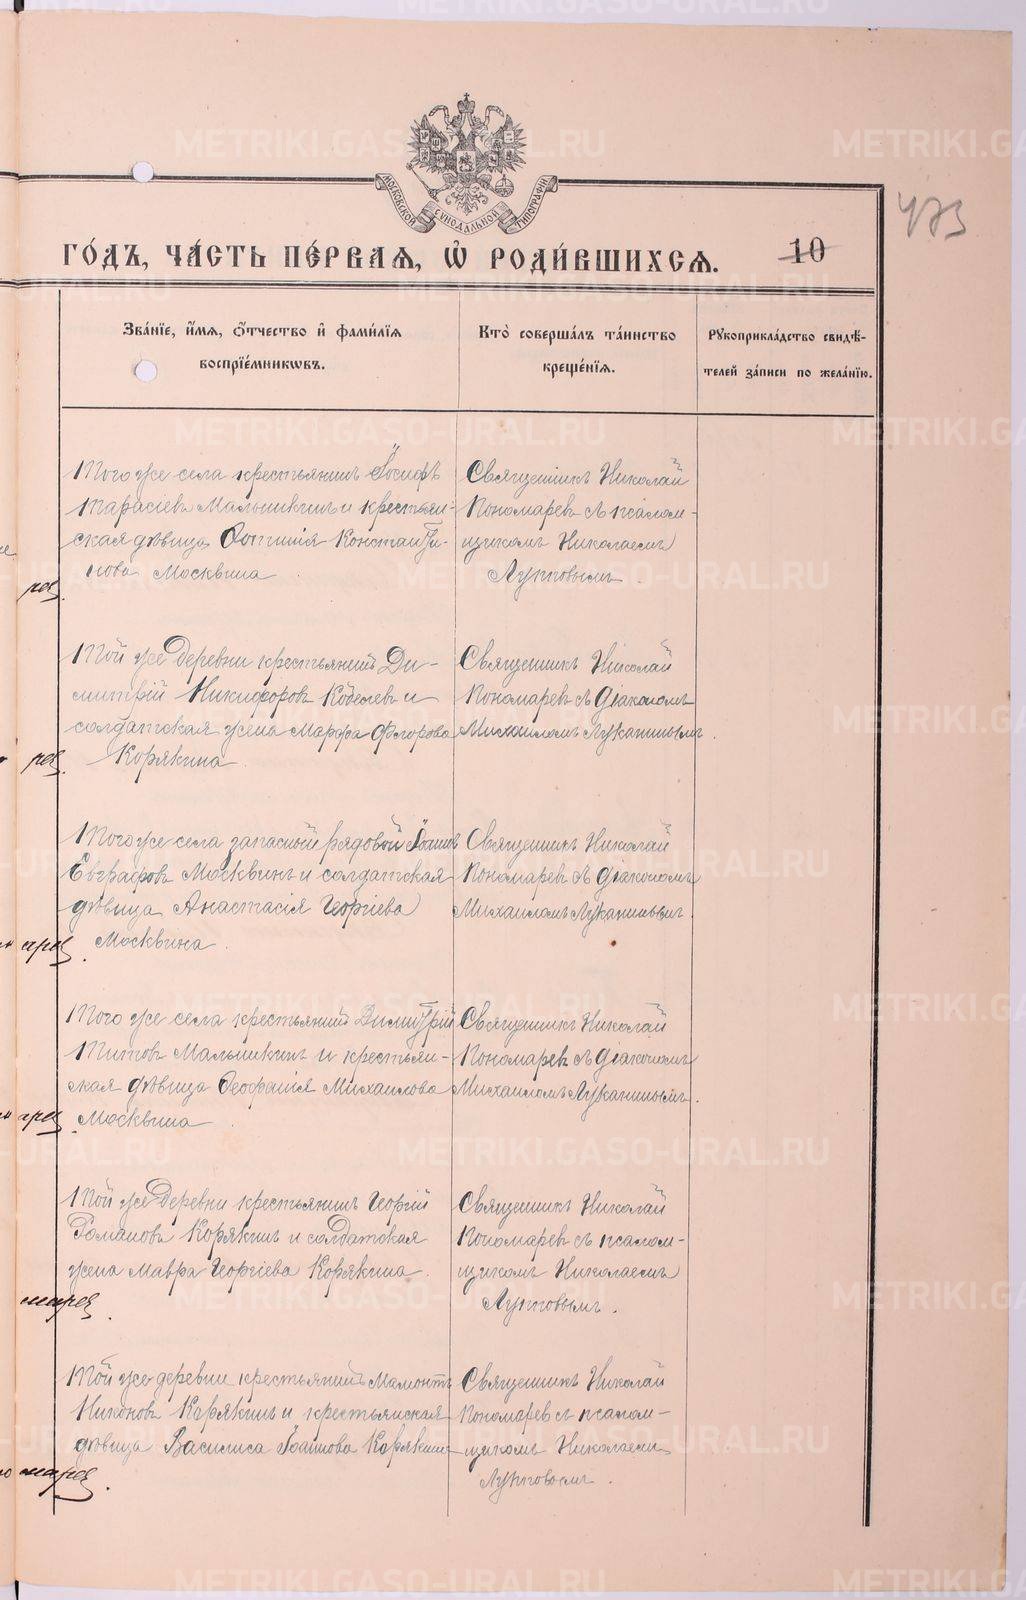 МОСКОВСКОЙ СѴНОДАЛЬНОЙ ТИПОГРАФІИ
473
ГО́ДЪ, ЧА́СТЬ ПЕ́РВАѦ, Ѡ҆ РОДИ́ВШИХСѦ.
10
Зва́нїе, и҆́мѧ, ѻ҆́тчество и҆ фами́лїѧ
воспрїе́мникѡвъ.
Кто̀ соверша́лъ та́инство
креще́нїѧ.
Рꙋкоприкла́дство свидѣ́-
телей за́писи по жела́нїю.
Того же села крестьянинъ Іосифъ
Тарасіевъ Малышкинъ и крестьян-
ская дѣвица Фотинія Константи-
нова Москвина
Священникъ Николай
Пономаревъ съ псалом-
щикомъ Николаемъ
Луповымъ.
Той же деревни крестьянинъ Ди-
митрій Никифоровъ Кобелевъ и
солдатская жена Марфа Флорова
Корякина
Священникъ Николай
Пономаревъ съ діакономъ
Михаиломъ Луканинымъ.
Того же села запасный рядовой Іоаннъ
Евграфовъ Москвинъ и солдатская
дѣвица Анастасія Георгіева
Москвина.
Священникъ Николай
Пономаревъ съ діакономъ
Михаиломъ Луканинымъ.
Того же села крестьянинъ Димитрій
Титовъ Малышкинъ и крестьян-
ская дѣвица Феофанія Михаилова
Москвина
Священникъ Николай
Пономаревъ съ діакономъ
Михаиломъ Луканинымъ.
Той же деревни крестьянинъ Георгій
Романовъ Корякинъ и солдатская
жена Мавра Георгіева Корякина.
Священникъ Николай
Пономаревъ съ псалом-
щикомъ Николаемъ
Луповымъ.
Той же деревни крестьянинъ Мамонтъ
Никоновъ Корякинъ и крестьянская
дѣвица Василиса Іоаннова Корякина
Священникъ Николай
Пономаревъ съ псалом-
щикомъ Николаемъ
Луповымъ.
METRIKI.GASO-URAL.RU